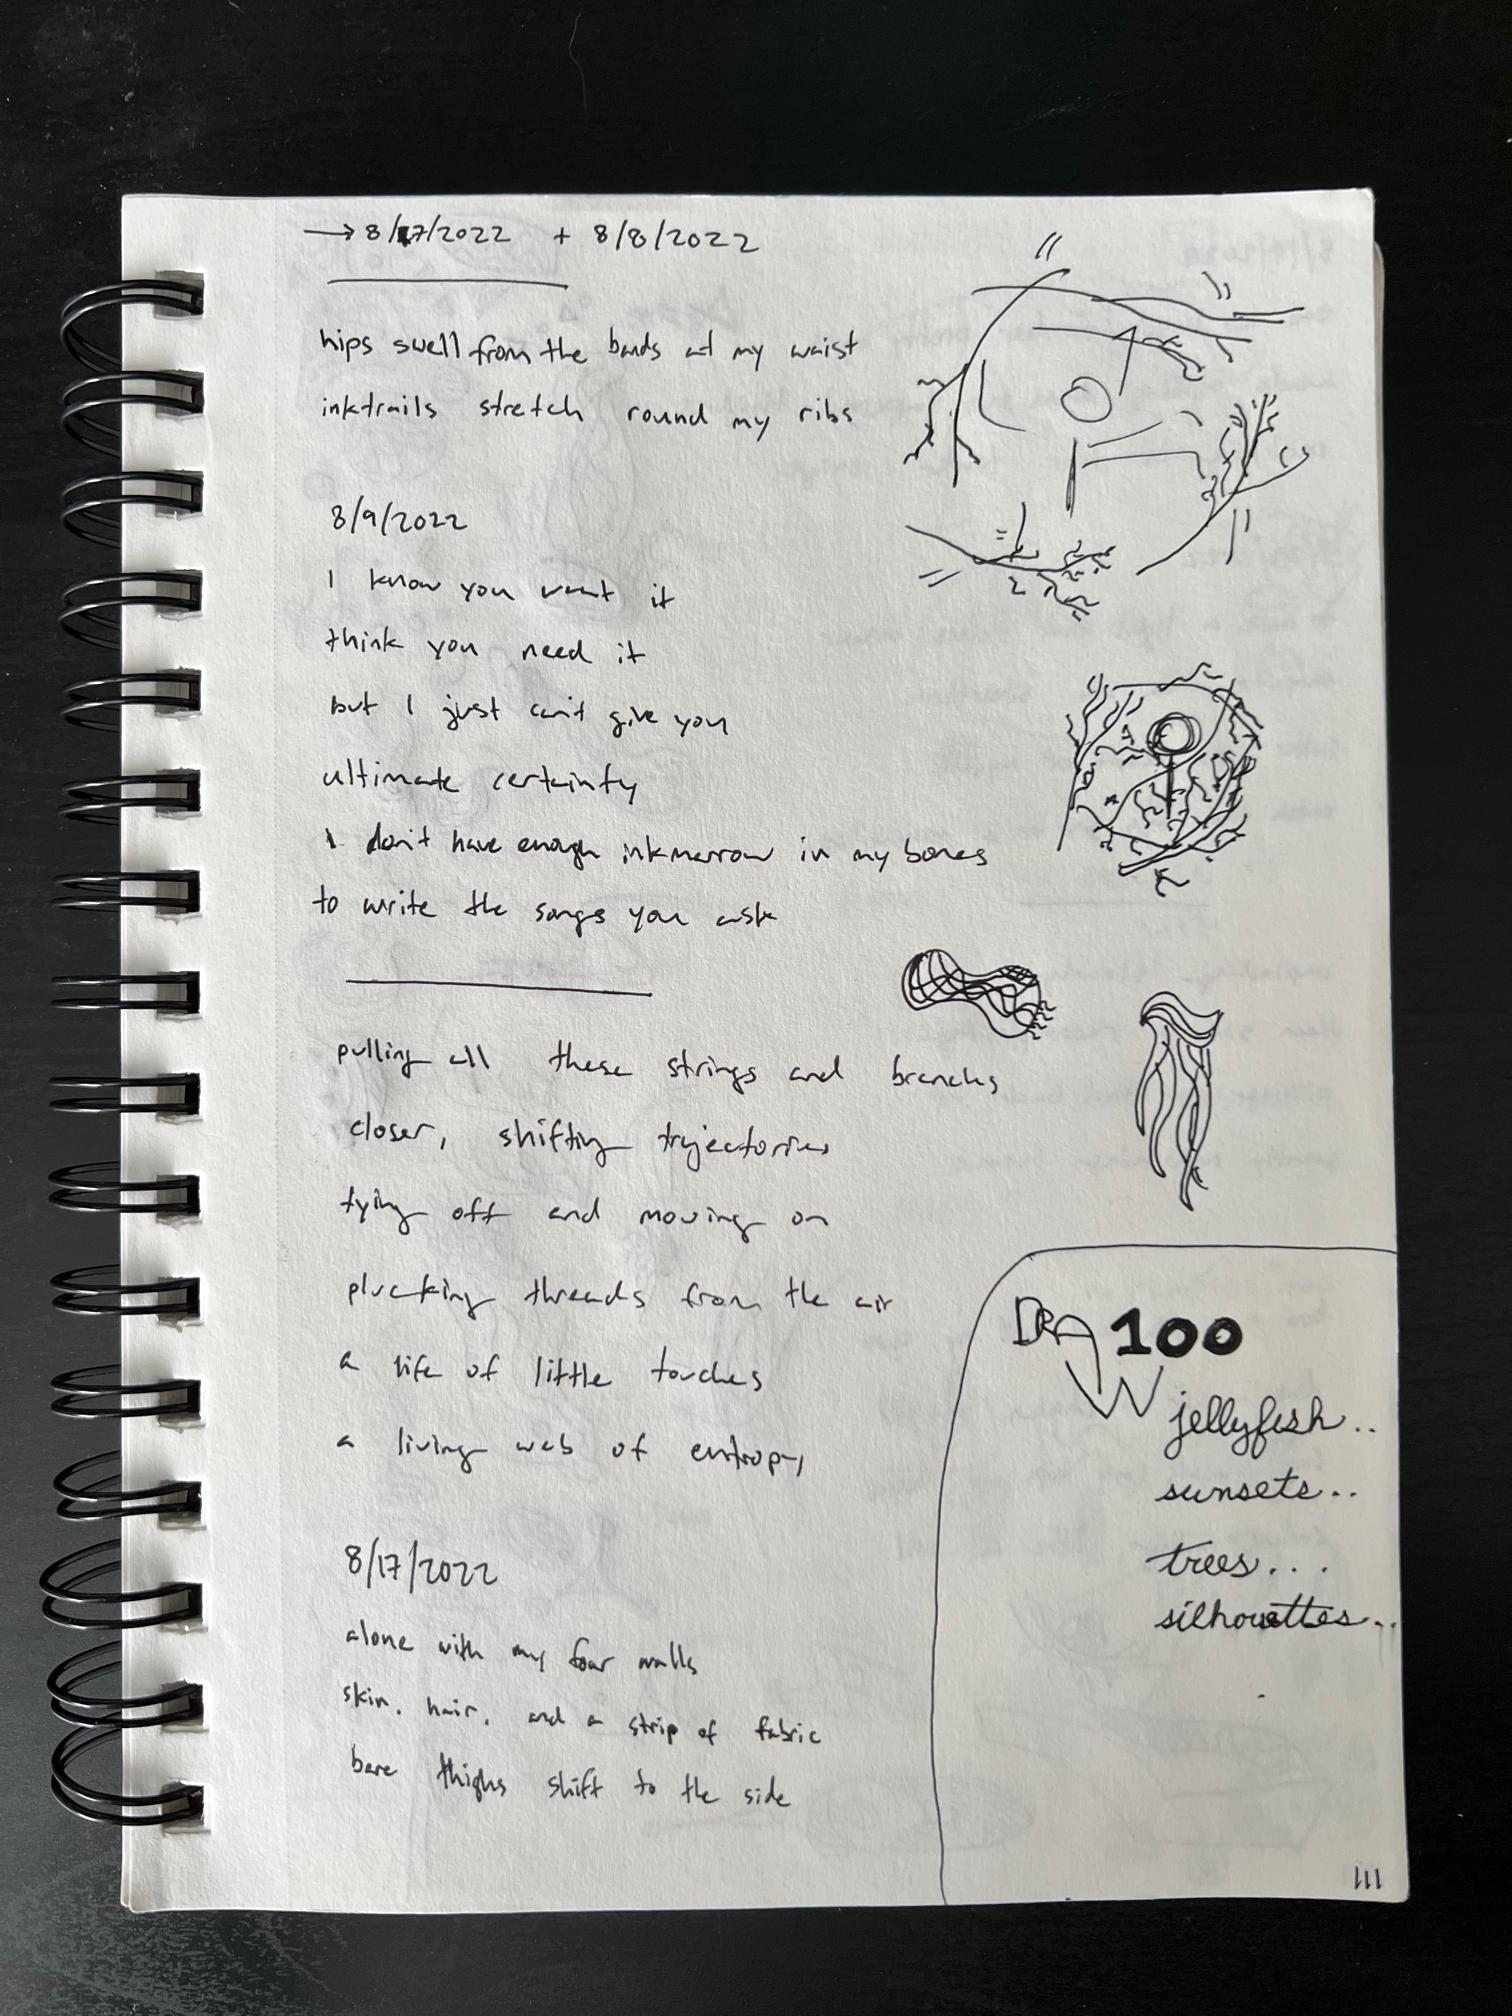 → 8/7/2022 + 8/8/2022
hips swell from the bands at my waist
inktrails stretch round my ribs
8/9/2022
I know you want it
think you need it
but I just can't give you
ultimate certainty
I don't have enough inkmarrow in my bones
to write the songs you ask
pulling all these strings and branches
closer, shifting trajectories
tying off and moving on
plucking threads from the air
a life of little touches
a living web of entropy
8/17/2022
alone with my four walls
skin, hair, and a strip of fabric
bare thighs shift to the side
DRAW 100
jellyfish..
sunsets..
trees...
silhouettes..
111